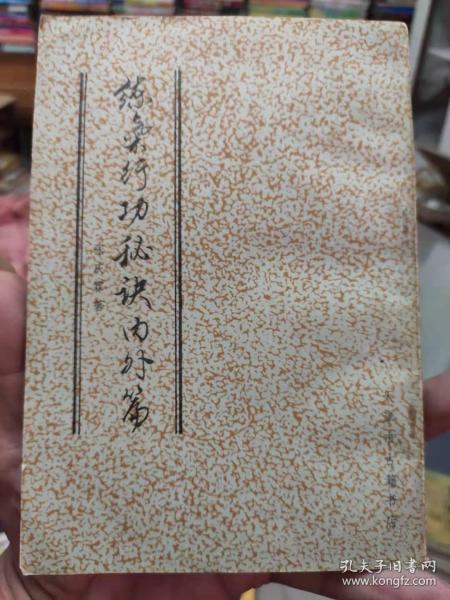 练气行功秘诀内外篇
天津市古籍书店
孔夫子旧书网
www.kongfz.com